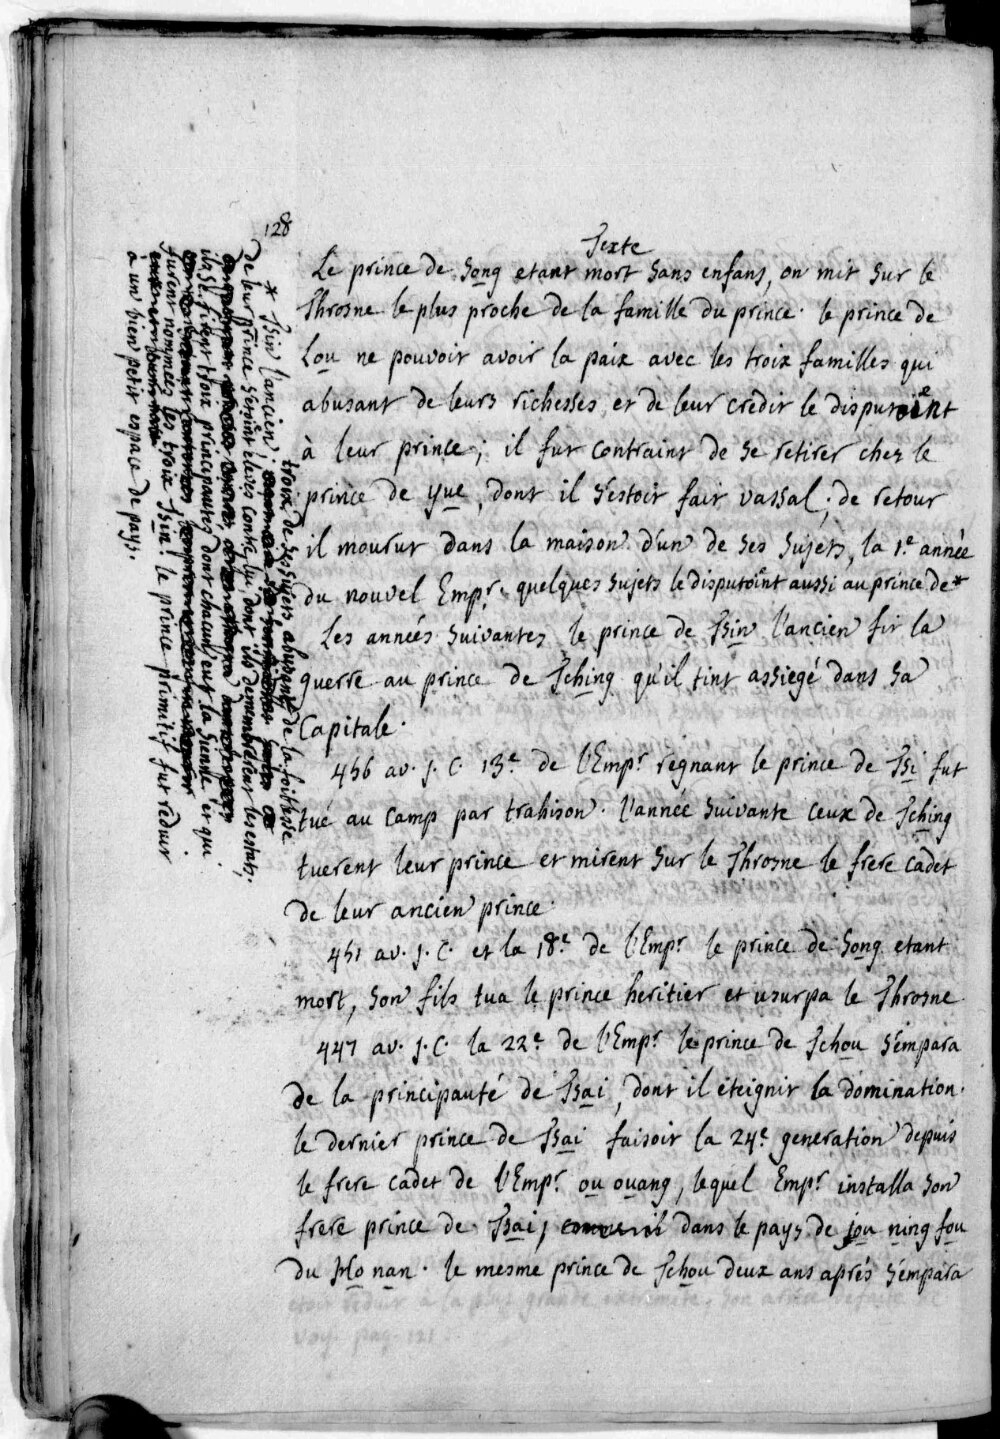 128
Texte
Le prince de Song etant mort sans enfans, on mit sur le
Throsne le plus proche de la famille du prince. le prince de
Lou ne pouvoit avoir la paix avec les troix familles qui
abusant de leurs richesses et de leur credit le disputoient
à leur prince; il fut contraint de se retirer chez le
prince de yue, dont il s'estoit fait vassal; de retour
il mourut dans la maison d'un de ses sujets, la 1.e année
du nouvel Emp.r quelques sujets le disputoint aussi au prince de*
Les années suivantes le prince de Tsin l'ancien fit la
guerre au prince de Tching qu'il tint assiegé dans sa
Capitale.
456 av. J. C. 13.e de l'Emp.r regnant le prince de Tsi fut
tué au camp par trahison. l'année suivante ceux de Tching
tuerent leur prince et mirent sur le Throsne le frere cadet
de leur ancien prince.
451 av. J. C. et la 18.e de l'Emp.r le prince de Song etant
mort, son fils tua le prince heritier et usurpa le Throsne
447 av. J. C. la 22.e de l'Emp.r le prince de Tchou s'empara
de la principauté de Tsai, dont il éteignit la domination.
le dernier prince de Tsai faisoit la 24.e generation depuis
le frere cadet de l'Emp.r ou ouang, lequel Emp.r installa son
frere prince de Tsai, dans le pays de jou ning fou
du Ho nan. le mesme prince de Tchou deux ans aprés s'empara
* Tsin l'ancien; troix de ses sujets abusant de la foiblesse
de leur prince s'etoint eleves contre lui, dont ils demembrerent les estats,
ils se firent troix principautes dont chacun eut la sienne, et qui
furent nommées les troix Tsin. le prince primitif fut reduit
à un bien petit espace de pays.